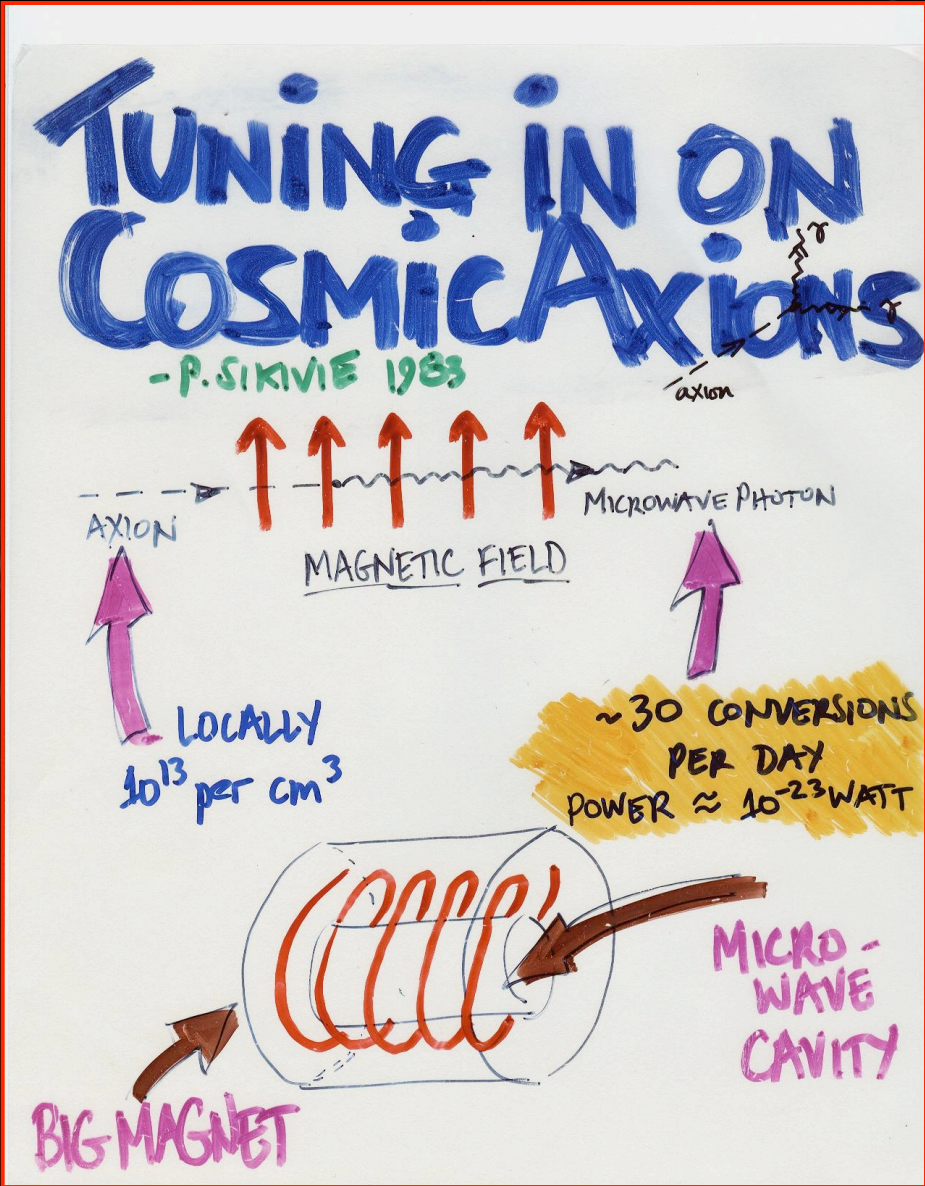 TUNING IN ON
COSMIC AXIONS
γ
γ
axion
- P. SIKIVIE 1983
AXION
MICROWAVE PHOTON
MAGNETIC FIELD
LOCALLY
10¹³ per cm³
~30 CONVERSIONS
PER DAY
POWER ≈ 10⁻²³ WATT
MICRO-
WAVE
CAVITY
BIG MAGNET